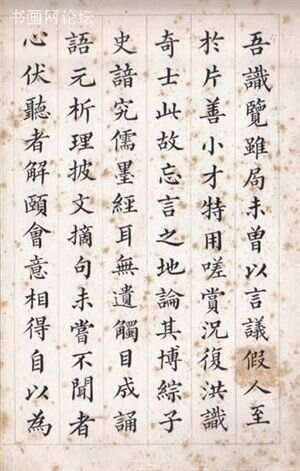 书画网论坛
吾識覽雖局未曾以言議假人至
於片善小才特用嗟賞況復洪識
奇士此故忘言之地論其博綜子
史諳究儒墨經耳無遺觸目成誦
語元析理披文摘句未嘗不聞者
心伏聽者解頤會意相得自以為